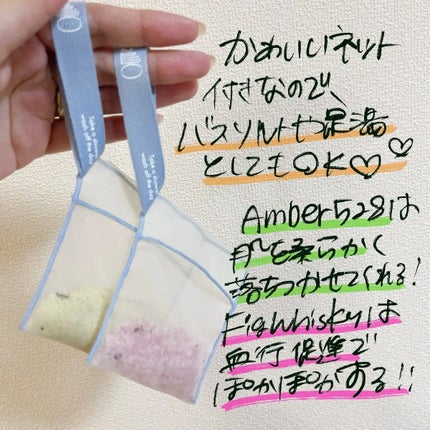 かわいいネット
付きなので、
バスソルトや足湯
としてもOK♡♡
Amber528は
肌を柔らかく
落ちつかせてくれる!
Figwhiskyは
血行促進で
ぽかぽかする!!
Take a show
wash off the day
Take a show
wash off the day